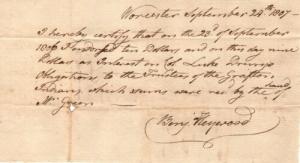 Worcester September 24th 1807
I hereby certify that on the 23d of September
1806 I indorsed ten Dollars and on this day nine
Dollars as Interest on Col Luke Drurys
Obligations to the Trustees of the Grafton
Indians which sums were recd by the hand of
Mr Green
Benj Heywood